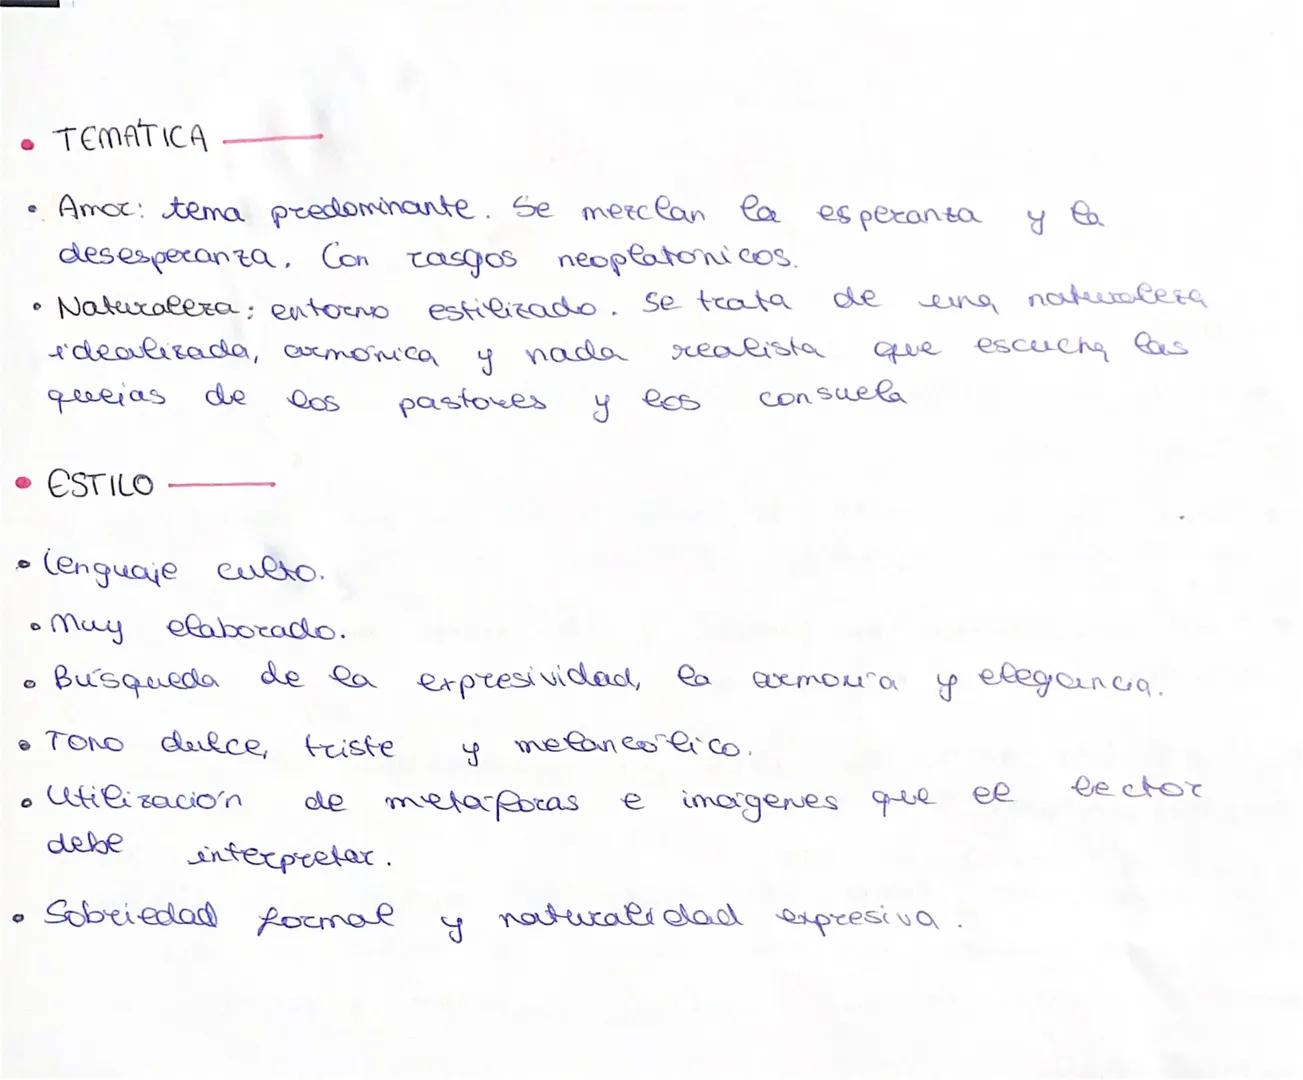 • TEMÁTICA
• Amor: tema predominante. Se mezclan la esperanza y la
desesperanza. Con rasgos neoplatonicos.
• Naturaleza: entorno estilizado. Se trata de una naturaleza
idealizada, armónica y nada realista que escucha las
quejas de los pastores y los consuela
• ESTILO
• lenguaje culto.
• Muy elaborado.
• Búsqueda de la expresividad, la armonía y elegancia.
• Tono dulce, triste y melancólico.
• Utilización de metáforas e imágenes que el lector
debe interpretar.
• Sobriedad formal y naturalidad expresiva.